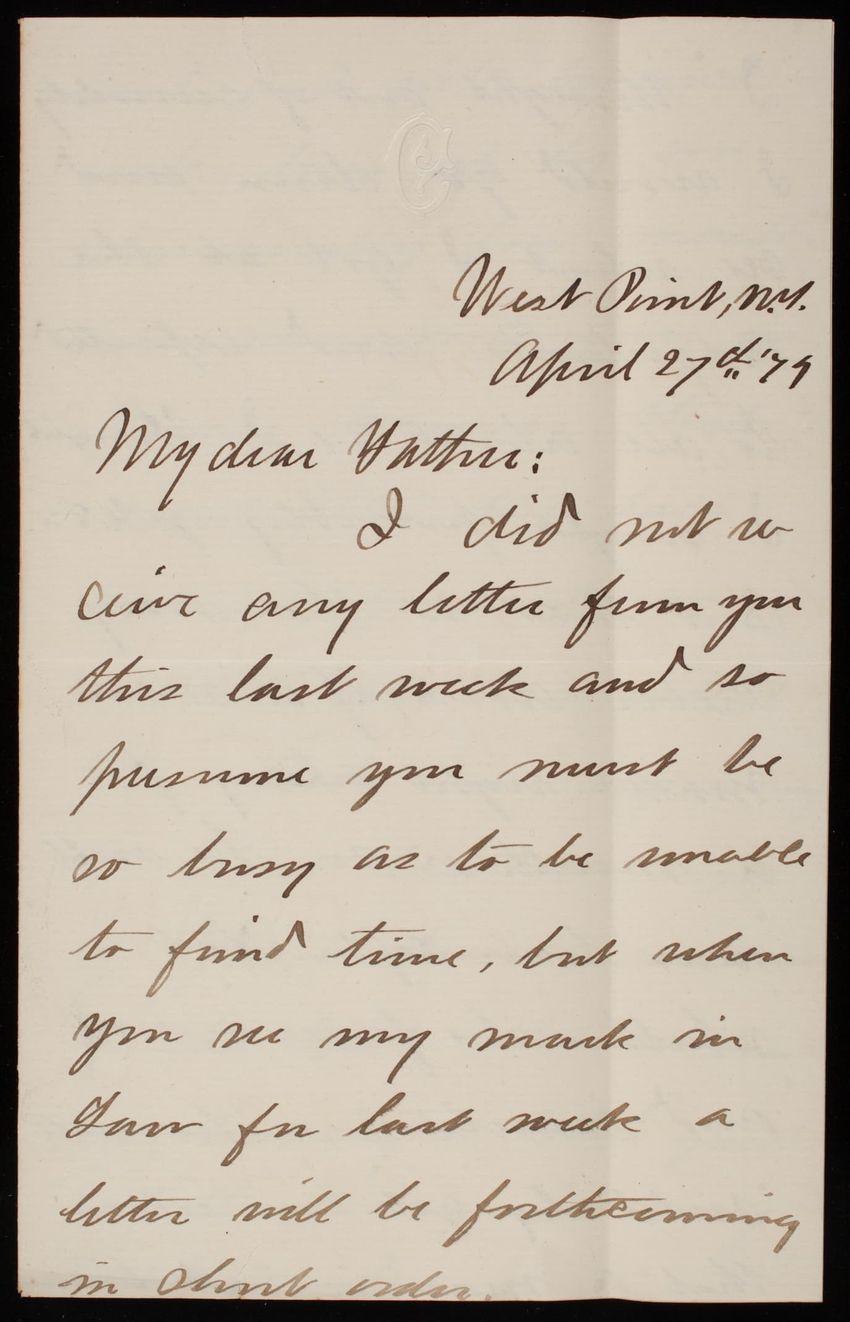 C
West Point, N.Y.
April 27th '79
My dear Father:
I did not re
ceive any letter from you
this last week and so
presume you must be
so busy as to be unable
to find time, but when
you see my mark in
Law for last week a
letter will be forthcoming
in short order.